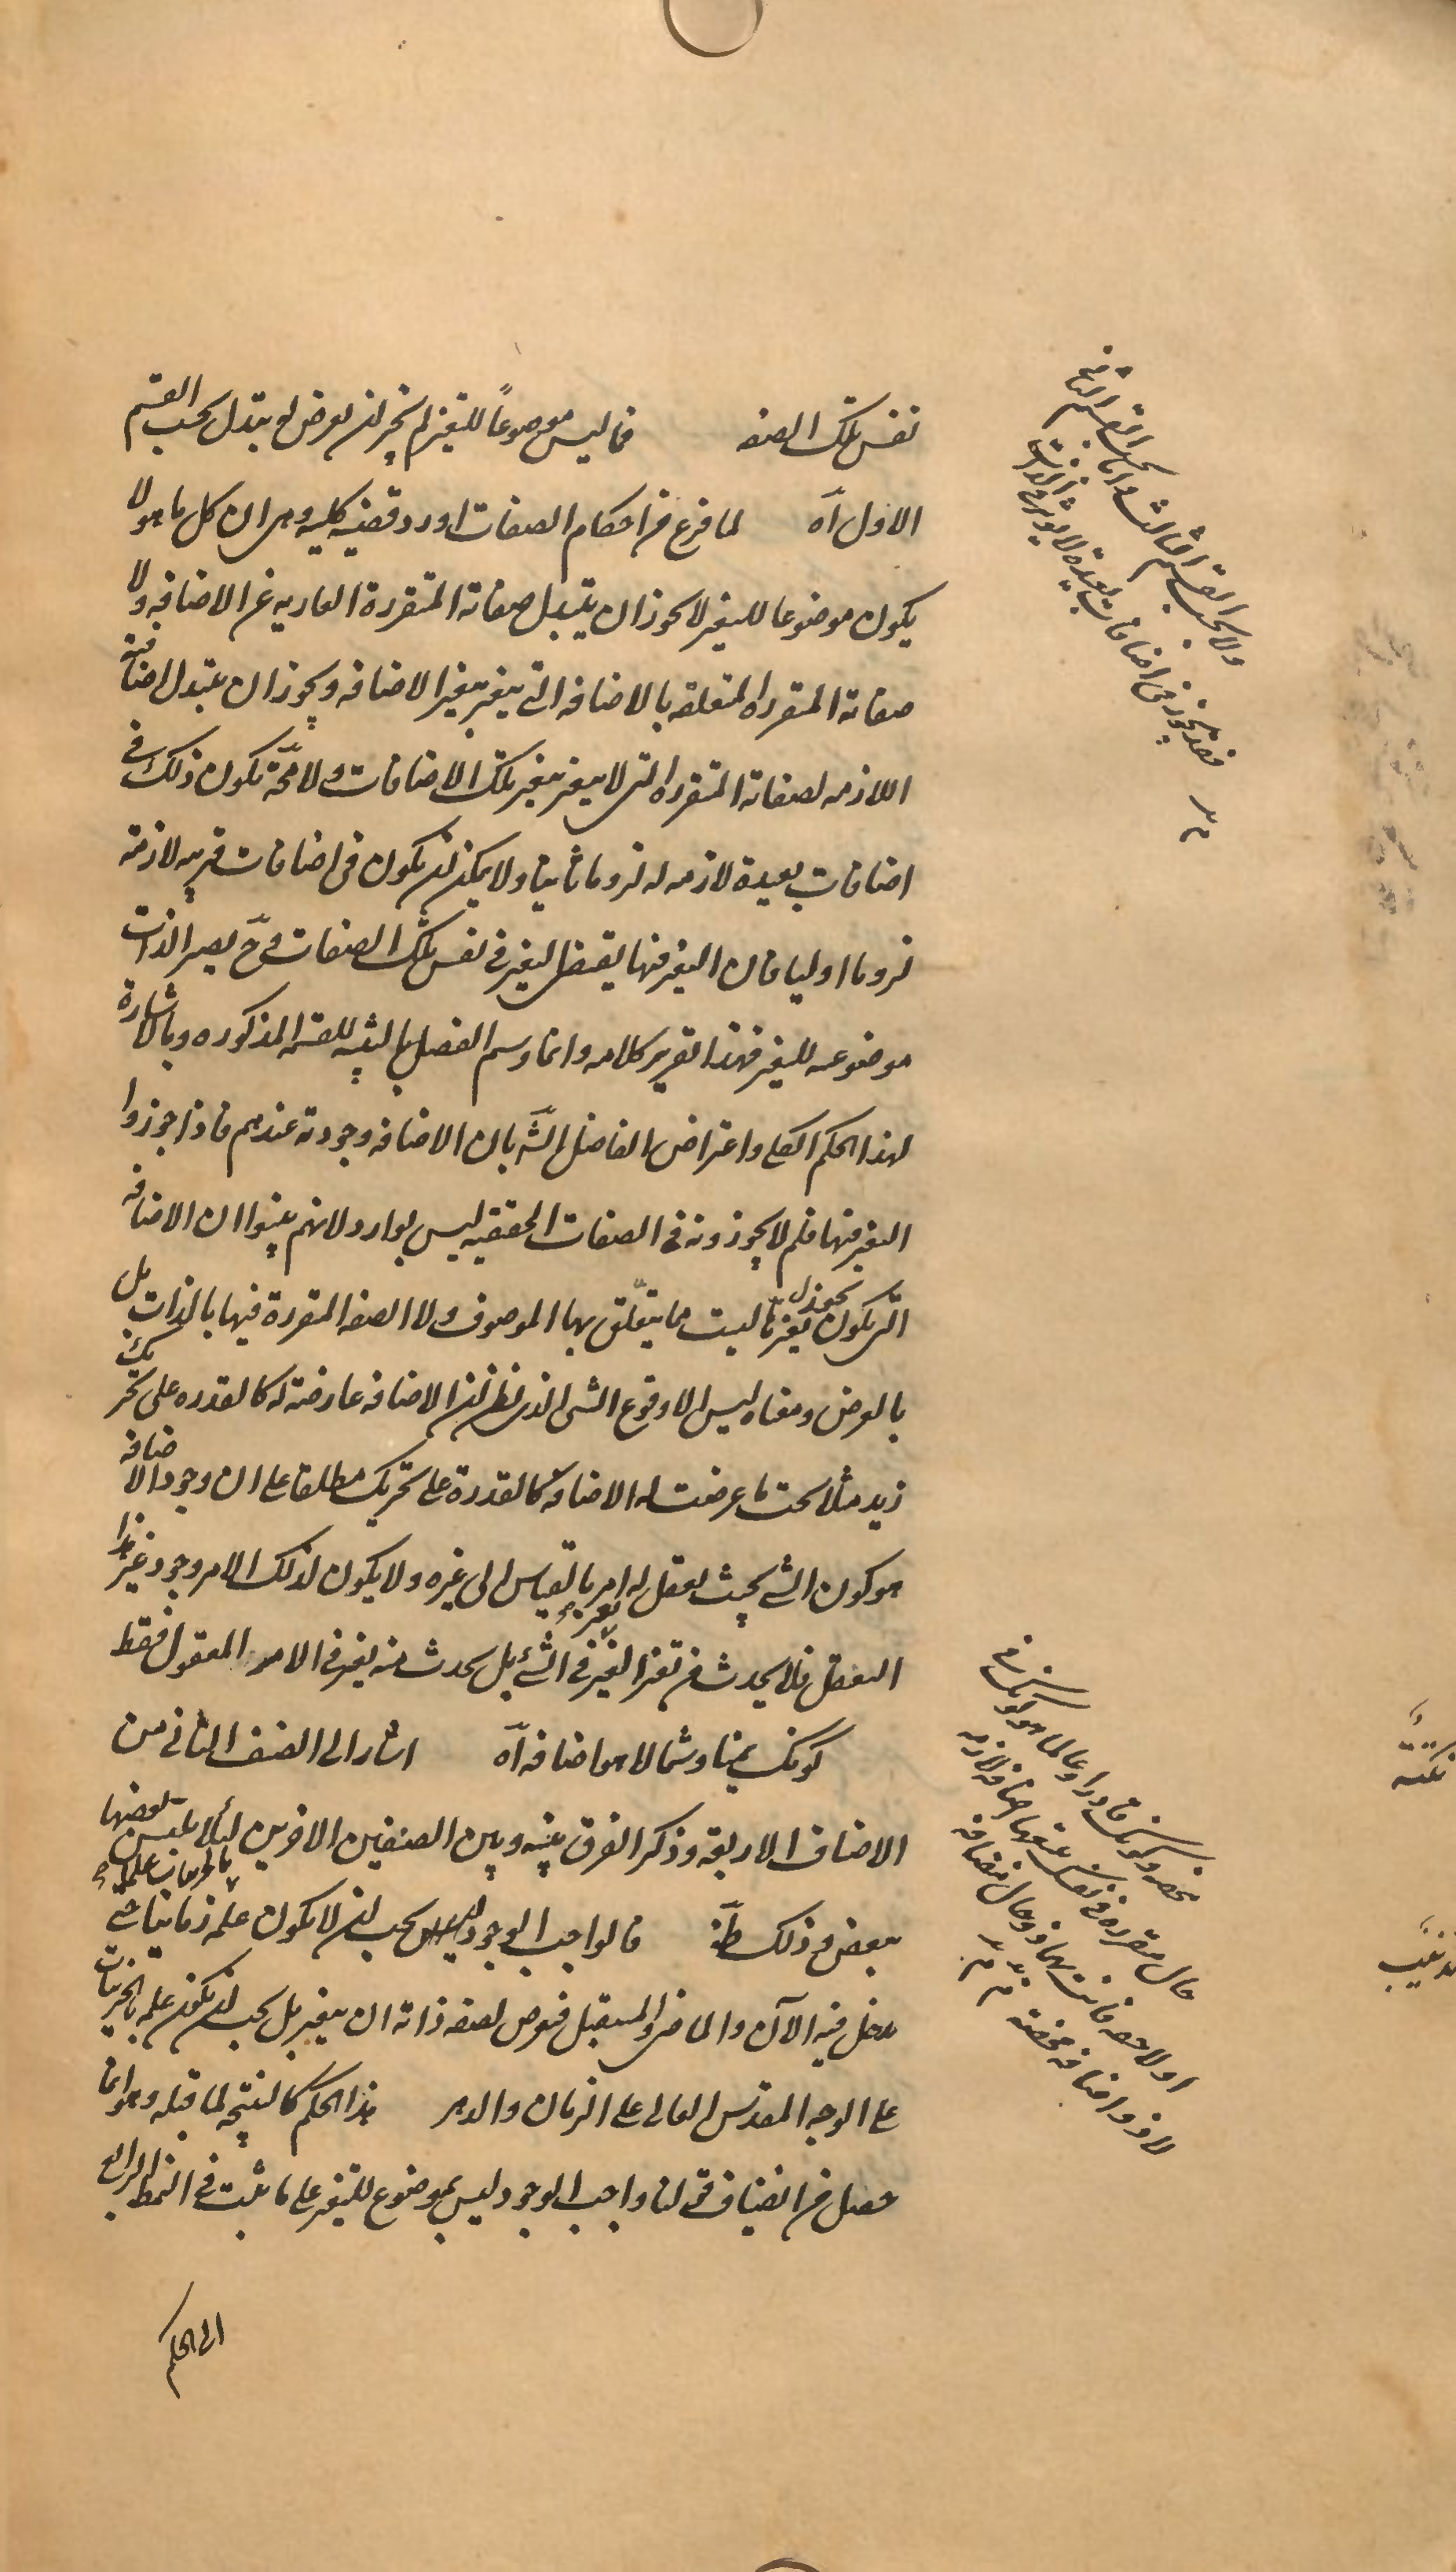 نفس تلك الصفه فما ليس موضوعاً للتغير لم يجز ان يعرض له تبدل بحسب القسم
الاول آه لما فرغ من احكام الصفات اورد قضيه كليه وهى ان كل ما هو لا
يكون موضوعا للتغير لا يجوز ان يتبدل صفاته المتقررة العاريه عن الاضافه ولا
صفاته المتقرره المتعلقه بالاضافه التى يتغير بتغير الاضافه ويجوز ان يتبدل اضافته
اللازمه لصفاته المتقرره التى لا يتغير بتغير تلك الاضافات ولا محّة يكون ذلك فى
اضافات بعيدة لازمه له لزوما ثانيا ولا يمكن ان يكون فى اضافات قريبه لازمة
لزوما اوليا فان التغير فيها يقتضى التغير فى نفس تلك الصفات وحّ يصير الذات
موضوعه للتغير فهذا تقرير كلامه وانما وسم الفصل بالتنبيه للقسمه المذكوره وبالاشارة
لهذا الحكم الكلى واعتراض الفاضل الشّه بان الاضافه وجودية عندهم فاذا جوزوا
التغير فيها فلم لا يجوزونه فى الصفات الحقيقيه ليس بوارد لانهم بينوا ان الاضافه
التى يكون يجوز تغيرها ليست مما يتعلّق بها الموصوف ولا الصفه المتقررة فيها بالذات بل
بالعرض ومعناه ليس الا وقوع الشى الذى يظن ان الاضافه عارضة له كالقدره على تحريك
زيد مثلا تحت ما عرضت له الاضافة كالقدرة على تحريك مطلقا على ان وجود الاضافه
هو كون الشى بحيث يعقل له امر بالقياس الى غيره ولا يكون لذلك الامر وجود غير هذا
التعقل فلا يحدث من تغيرها تغير فى الشئ بل يحدث منه تغير فى الامر المعقول فقط
كونك يمينا وشمالا هو اضافه آه اشار الى الصنف الثانى من
الاصناف الاربعة وذكر الفرق بينه وبين الصنفين الاخرين لئلا يلتبس بعضها
ببعض وذلك ظّ فالواجب الوجود يجب ان لا يكون علمه بالجزئيات علما زمانيا حتى
يدخل فيه الآن والماضى والمستقبل فيعرض لصفه ذاته ان يتغير بل يجب ان يكون علمه بالجزئيات
على الوجه المقدس العالى على الزمان والدهر هذا الحكم كالنتيجه لما قبله وهو انما
حصل من انضياف قولنا واجب الوجود ليس بموضوع للتغير على ما ثبت فى النمط الرابع
الى الحكم
ولا بحسب القسم الثالث واما بحسب القسم الثانى
فقد يجوز فى اضافات بعيدة لا يؤثر فى الذات
محضه وكونك قادرا وعالما هو كونك فى
حال متقررة فى نفسك يتبعها اضافه لازمه
او لاحقه فانت بهما ذو حال مضافه
لا ذو اضافه محضه
نكتة
تذنيب